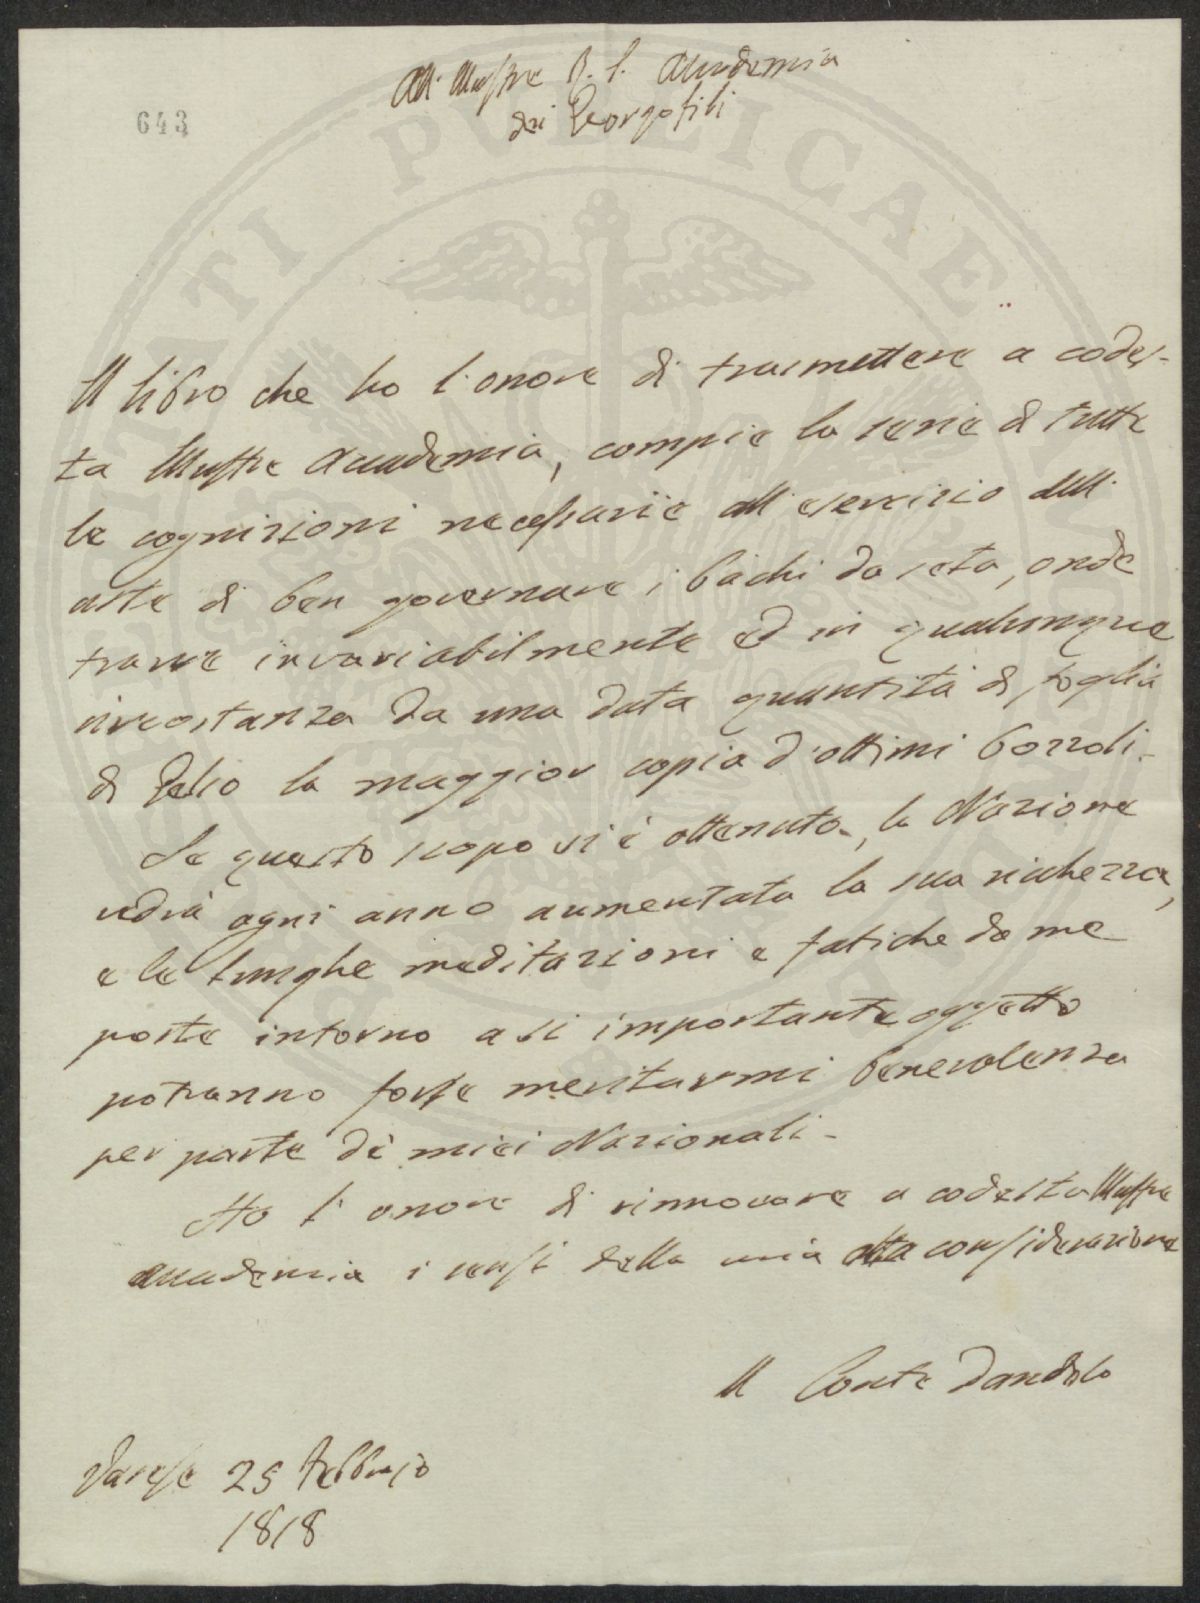 All' Illustre R. I. Accademia
dei Georgofili
643
Il libro che ho l'onore di trasmettere a codes-
ta Illustre Accademia, compie la serie di tutte
le cognizioni necessarie all'esercizio dell'
arte di ben governare i bachi da seta, onde
trarre invariabilmente ed in qualunque
circostanza da una data quantità di foglia
di Gelso la maggior copia d'ottimi bozzoli.
Se questo scopo si è ottenuto, la Nazione
vedrà ogni anno aumentata la sua ricchezza,
e le lunghe meditazioni e fatiche da me
poste intorno a si importante oggetto
potranno forse meritarmi benevolenza
per parte de' miei Nazionali.
Ho l'onore di rinnovare a codesta Illustre
Accademia i sensi della mia alta considerazione
Il Conte Dandolo
Varese 25 Febbrajo
1818